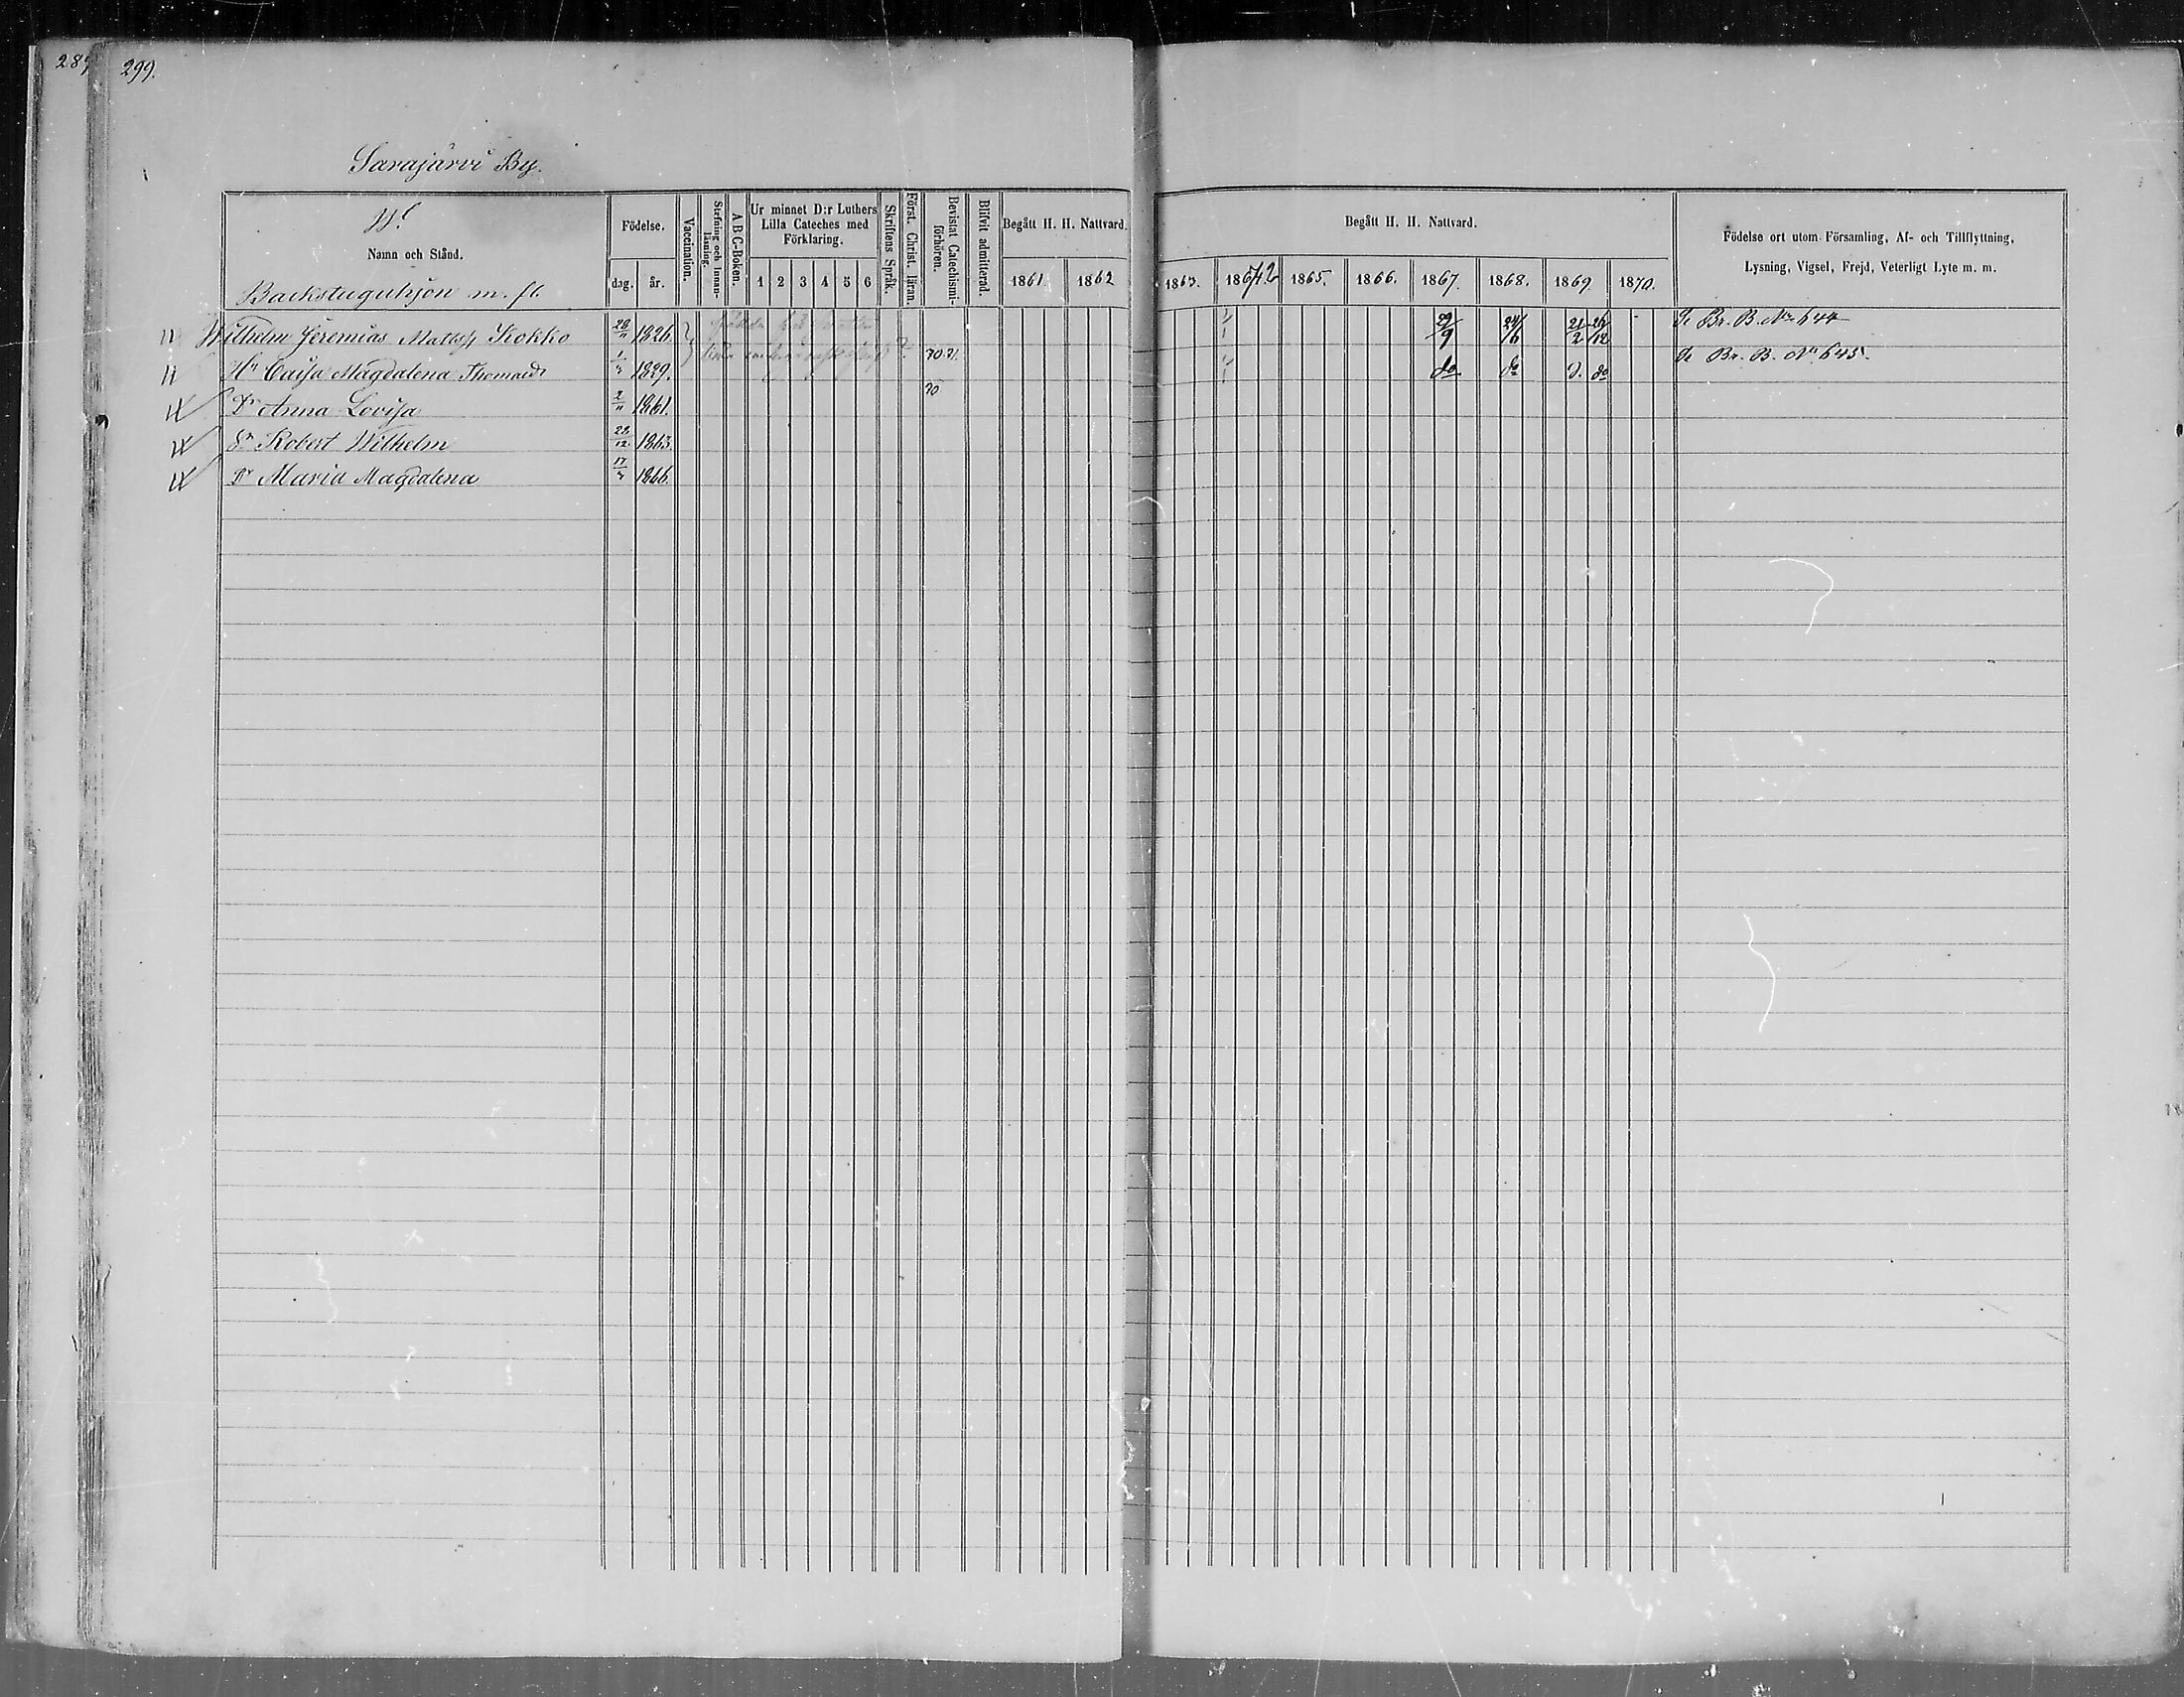 289
299.
Sarajärvi By.
Namn och Stånd.
Backstuguhjon m. fl.
Födelse.
dag. år.
Vaccination.
Stafning och Innan-läsning.
A B C-Boken.
Ur minnet D:r Luthers
Lilla Cateches med
Förklaring.
1 2 3 4 5 6
Skriftens Språk.
Först. Christ. läran.
Bevistat Catechismi-förhören.
Blifvit admitterad.
Begått H. H. Nattvard.
1861. 1862
Begått H. H. Nattvard.
1863. 1865. 1866. 1867. 1868. 1869. 1870.
Födelse ort utom Församling, Af- och Tillflyttning,
Lysning, Vigsel, Frejd, Veterligt Lyte m. m.
Wilhelm Jeremias Mattsp Kokko 28/11 1826. 29/9 24/6 21/2 26/12 Br. B. No 644
Hu Caisa Magdalena Thomasdr 1829. 70.71. do do d. do Br. B. No 645.
Dr Anna Lovisa 2/11 1861. 70
Sn Robert Wilhelm 28/12 1863.
Dr Maria Magdalena 1866.